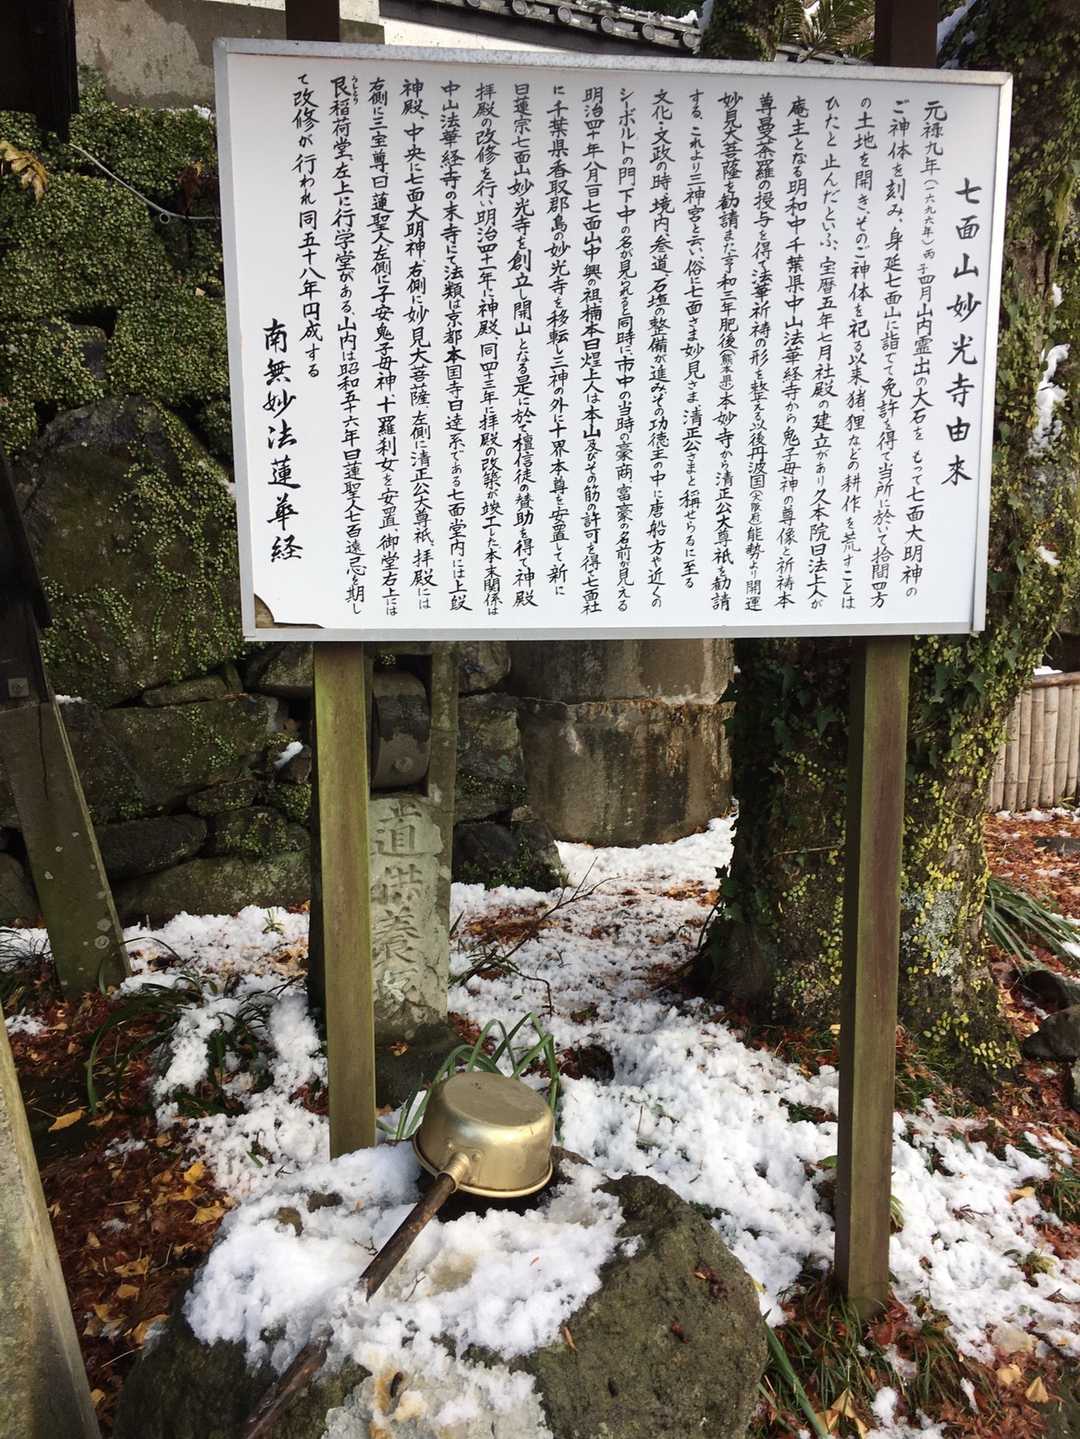 七面山妙光寺由來
元禄九年(一六九六年)丙子四月山内霊出の大石をもって七面大明神の
ご神体を刻み、身延七面山に詣でて免許を得て当所に於いて拾間四方
の土地を開き、そのご神体を祀る以来、猪、狸などの耕作を荒すことは
ひたと止んだといふ、宝暦五年七月社殿の建立があり久本院日法上人が
庵主となる明和中千葉県中山法華経寺から鬼子母神の尊像と祈祷本
尊曼荼羅の授与を得て法華祈祷の形を整える以後丹波国(大阪府)能勢より開運
妙見大菩薩を勧請また亨和三年肥後(熊本県)本妙寺から清正公大尊祇を勧請
する、これより三神宮と云い、俗に七面さま妙見さま、清正公さまと称せらるに至る
文化・文政の時、境内、参道、石垣の整備が進みその功徳主の中に唐船方や近くの
シーボルトの門下中の名が見られると同時に市中の当時の豪商、富豪の名前が見える
明治四十年八月一日七面山中興の祖楠本日煌上人は本山及びその筋の許可を得て七面社
に千葉県香取郡島の妙光寺を移転し三神の外に十界本尊を安置して新に
日蓮宗七面山妙光寺を創立し開山となる是に於て檀信徒の賛助を得て神殿
拝殿の改修を行い明治四十一年に神殿、同四十三年に拝殿の改築が竣工した本末関係は
中山法華経寺の末寺にて法類は京都本国寺日達系である七面堂内には上段
神殿、中央に七面大明神、右側に妙見大菩薩、左側に清正公大尊祇、拝殿には
右側に三宝尊日蓮聖人左側に子安鬼子母神、十羅刹女を安置、御堂右上には
艮稲荷堂、左上に行学堂がある、山内は昭和五十六年日蓮聖人七百遠忌を期し
て改修が行われ同五十八年円成する
南無妙法蓮華経
道供養塚